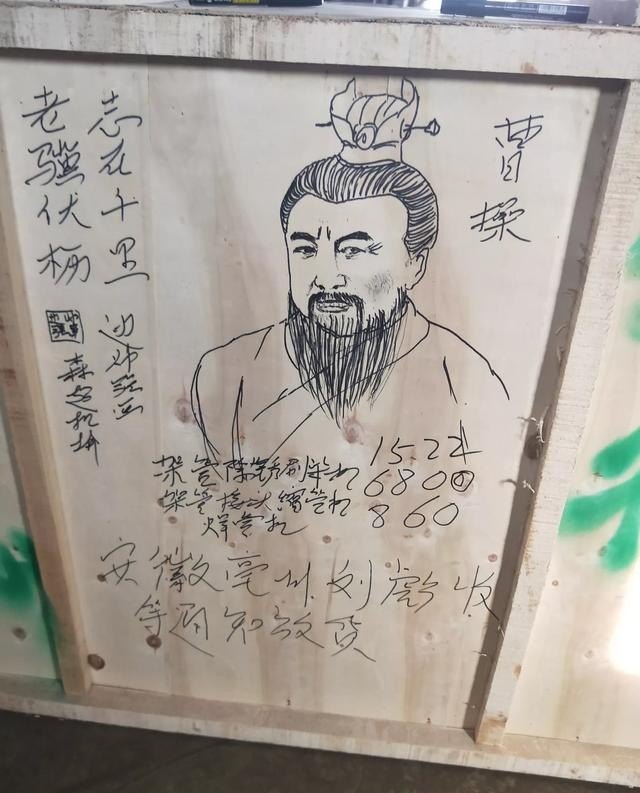 曹操
老骥伏枥
志在千里
森达机械
架管除锈刷漆机 15224
架管接头缩管机 6800
焊管机 860
安徽亳州刘彪收
等通知放货